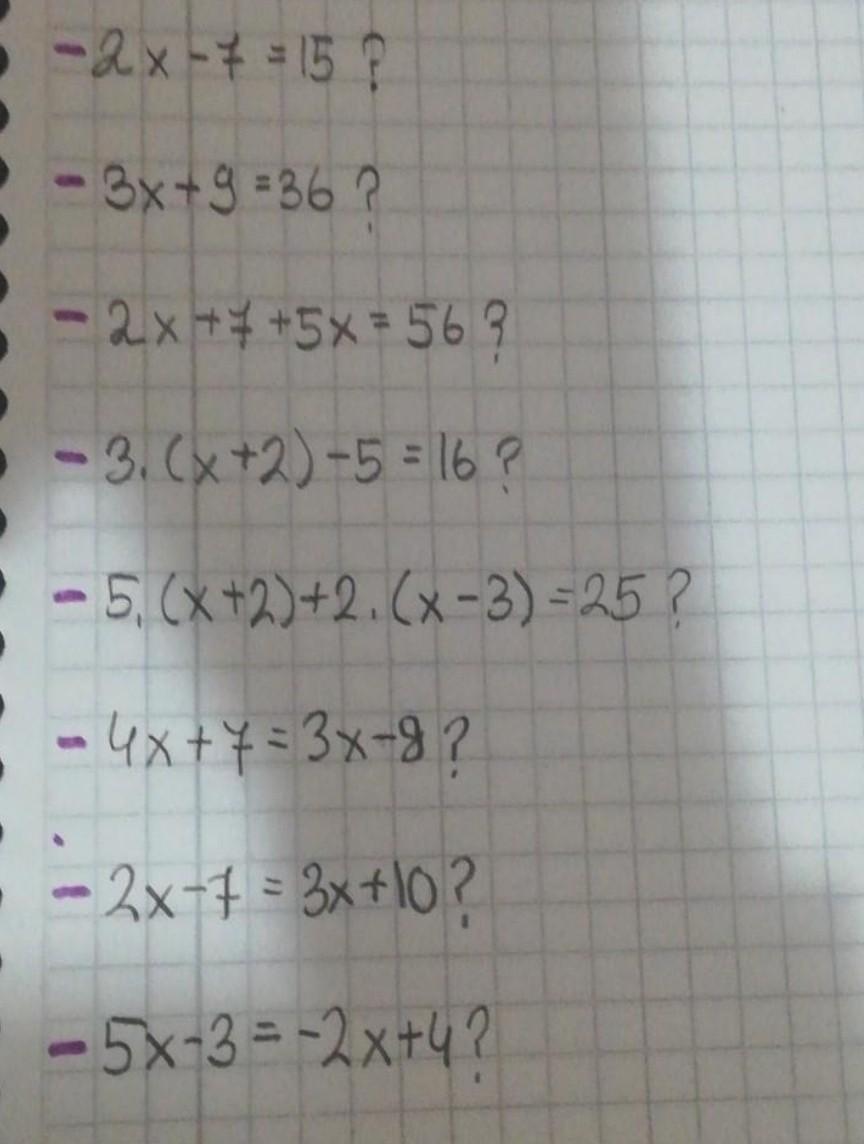 - 2x-7=15?
- 3x+9=36?
- 2x+7+5x=56?
- 3.(x+2)-5=16?
- 5.(x+2)+2.(x-3)=25?
- 4x+7=3x-8?
- 2x-7=3x+10?
- 5x-3=-2x+4?